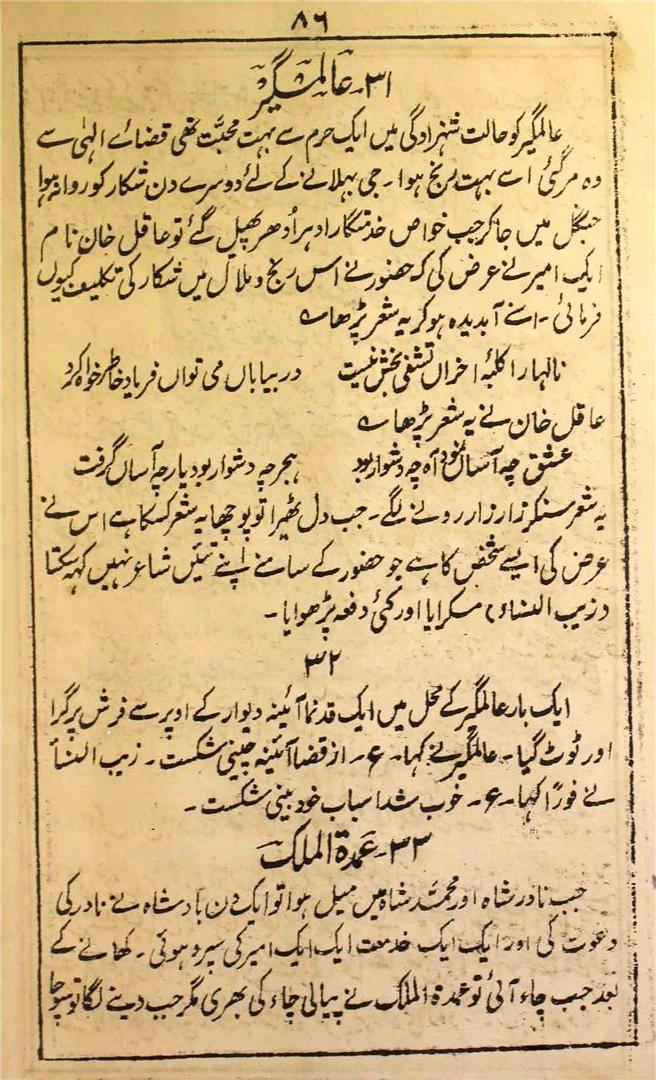 ۸۶
۳۱۔ عالمگیر
عالمگیر کو حالت شہزادگی میں ایک حرم سے بہت محبّت تھی قضائے الٰہی سے
وہ مر گئی اسے بہت رنج ہوا۔ جی بہلانے کے لئے دوسرے دن شکار کو روانہ ہوا
جنگل میں جا کر جب خواص خدمتگار ادہر اُدھر پھیل گئے تو عاقل خان نام
ایک امیر نے عرض کی کہ حضور نے اس رنج و ملال میں شکار کی تکلیف کیوں
فرمائی۔ اسنے آبدیدہ ہو کر یہ شعر پڑھا ؎
نالہا را کلبۂ احزاں تشفی بخش نیست در بیاباں می تواں فریاد خاطر خواہ کرد
عاقل خان نے یہ شعر پڑھا ؎
عشق چہ آساں نمود آہ چہ دشوار بود ہجر چہ دشوار بود یار چہ آساں گرفت
یہ شعر سنکر زار زار رونے لگے۔ جب دل ٹھیرا تو پوچھا یہ شعر کسکا ہے اس نے
عرض کی ایسے شخص کا ہے جو حضور کے سامنے اپنے تئیں شاعر نہیں کہہ سکتا
(زیب النساء) مسکرایا اور کئی دفعہ پڑھوایا۔
۳۲
ایک بار عالمگیر کے محل میں ایک قدنما آئینہ دیوار کے اوپر سے فرش پر گرا
اور ٹوٹ گیا۔ عالمگیر نے کہا۔ ع۔ از قضا آئینہ چینی شکست۔ زیب النسا
نے فورًا کہا۔ ع۔ خوب شد اسباب خود بینی شکست۔
۳۳۔ عمدة الملک
جب نادر شاہ اور محمّد شاہ میں میل ہوا تو ایک دن بادشاہ نے نادر کی
دعوت کی اور ایک ایک خدمت ایک ایک امیر کی سپرد ہوئی۔ کھانے کے
بعد جب چاء آئی تو عمدة الملک نے پیالی چاء کی بھری مگر جب دینے لگا تو سوچا